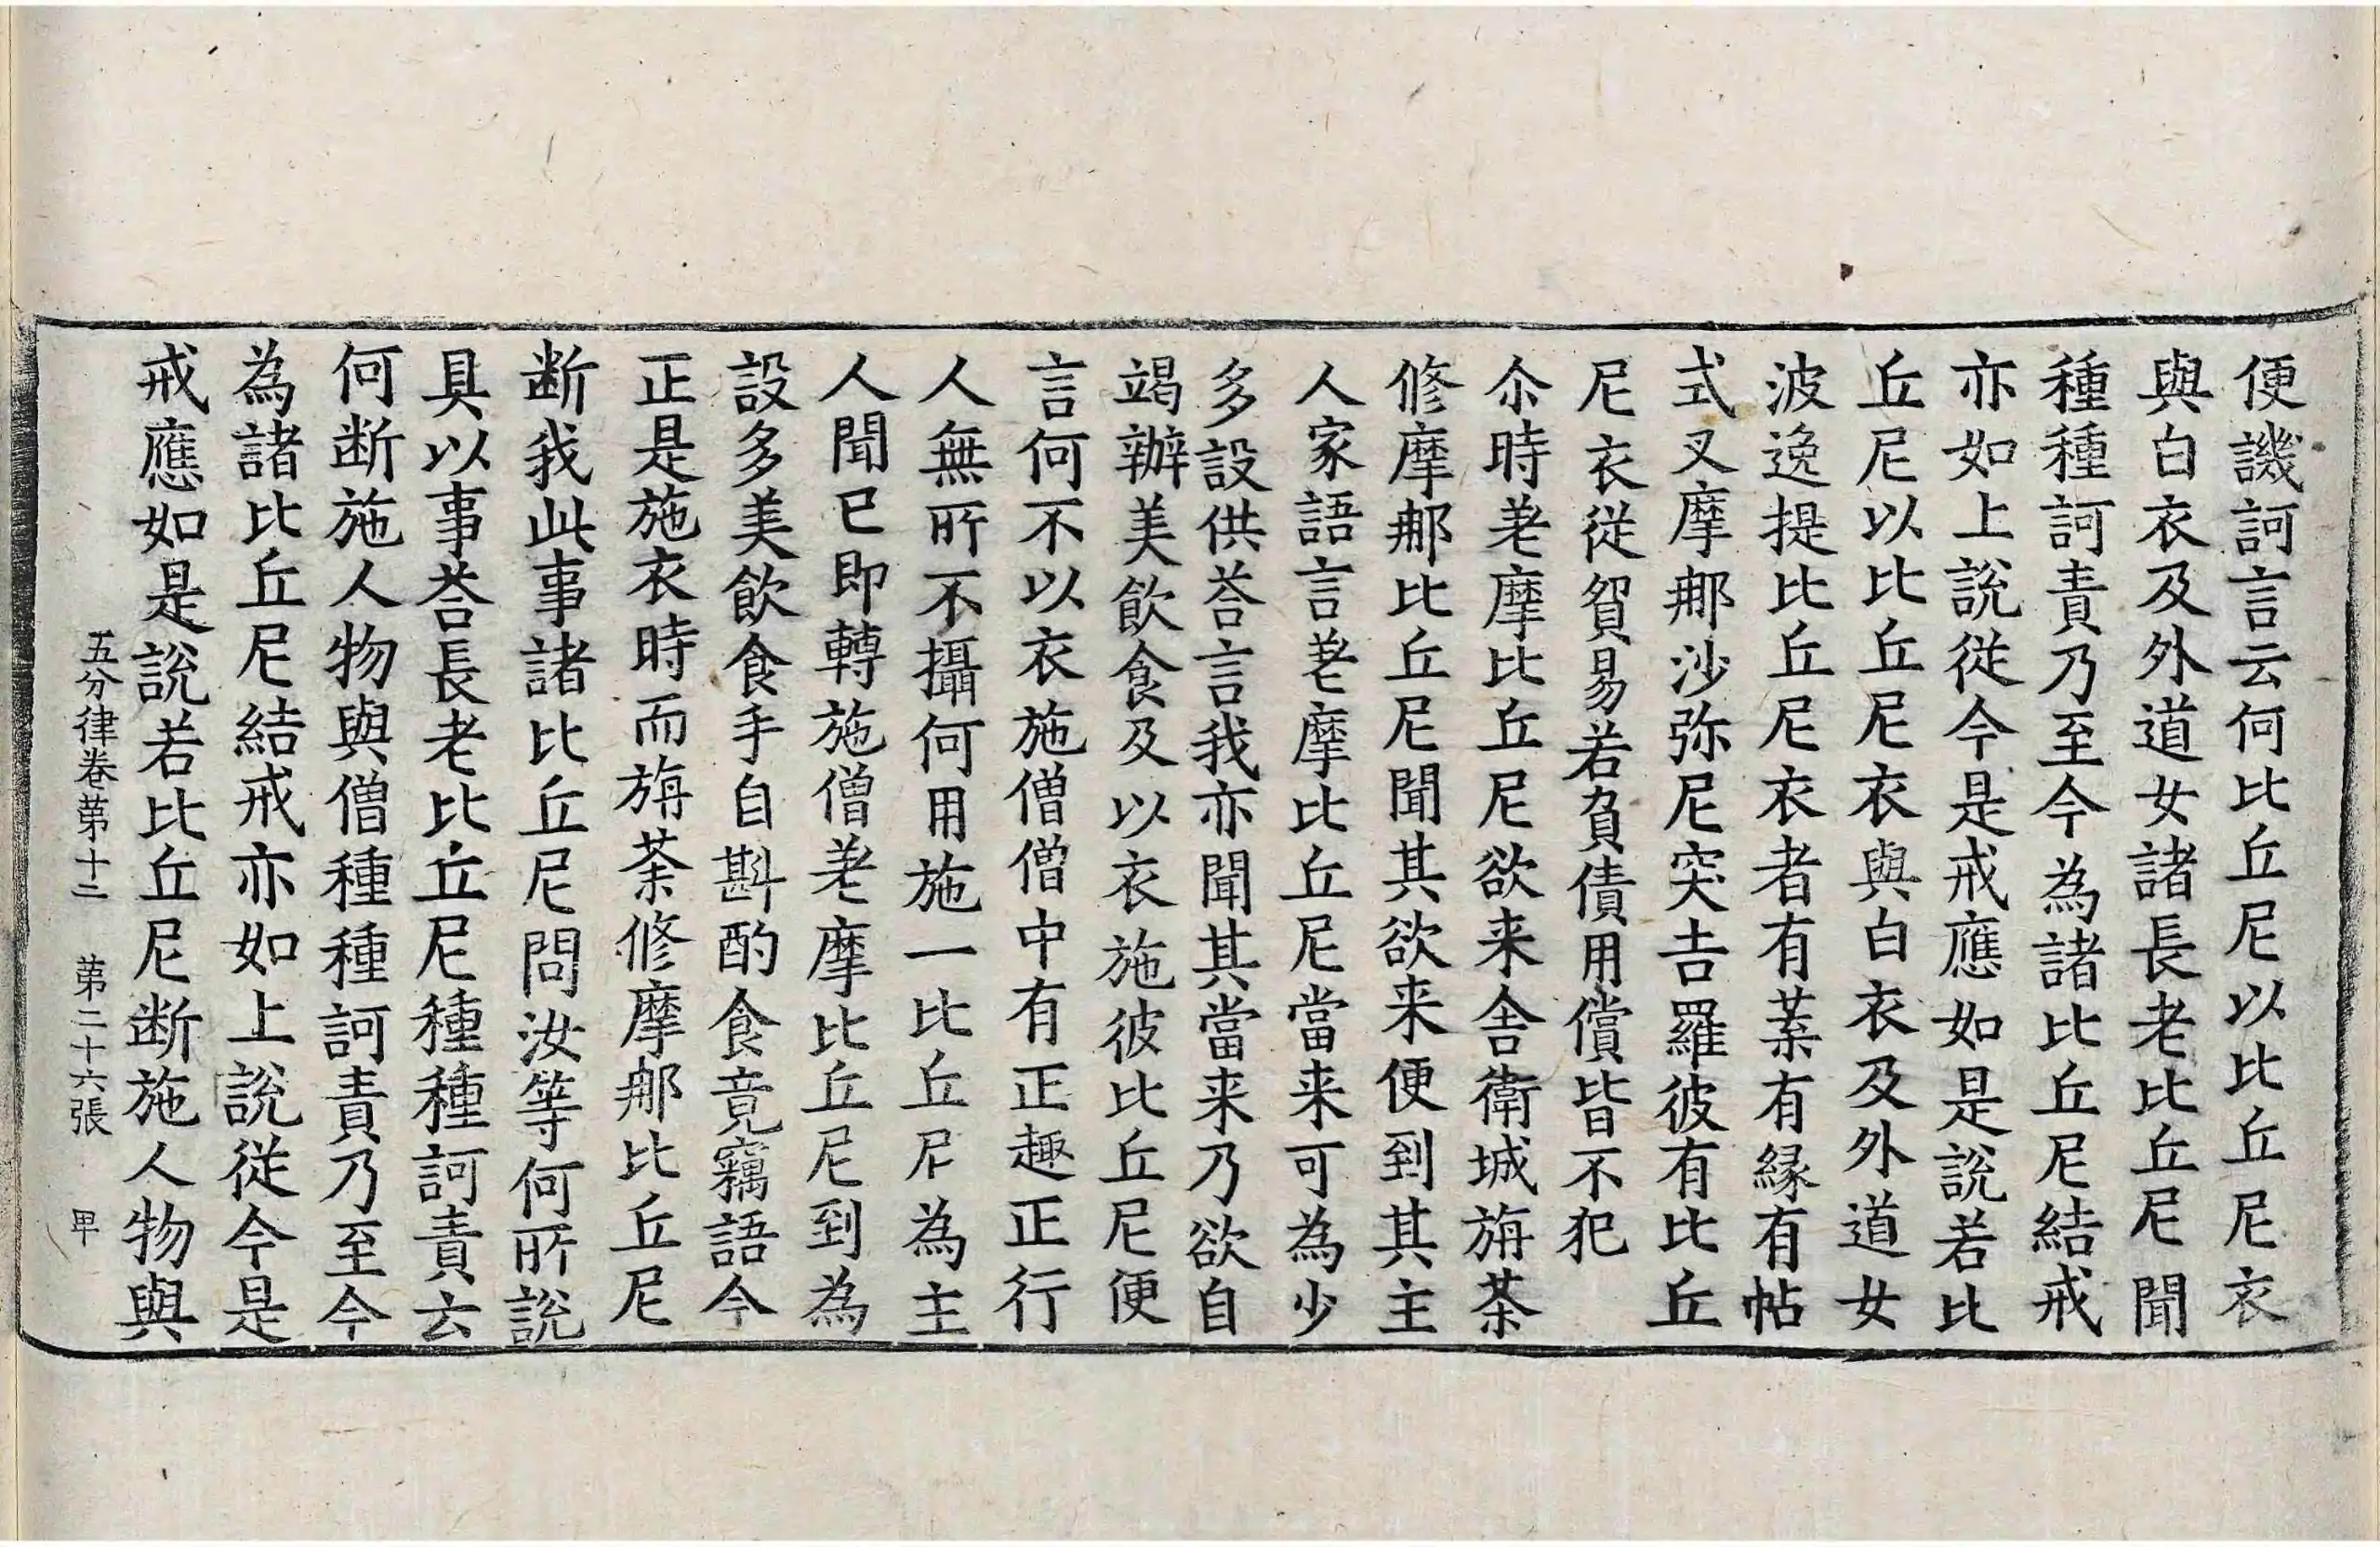 便譏訶言云何比丘尼以比丘尼衣
與白衣及外道女諸長老比丘尼聞
種種訶責乃至今為諸比丘尼結戒
亦如上說從今是戒應如是說若比
丘尼以比丘尼衣與白衣及外道女
波逸提比丘尼衣者有葉有緣有帖
式叉摩那沙弥尼突吉羅彼有比丘
尼衣從貿易若負債用償皆不犯
尒時差摩比丘尼欲来舍衛城旃荼
修摩那比丘尼聞其欲来便到其主
人家語言差摩比丘尼當来可為少
多設供荅言我亦聞其當来乃欲自
竭辦美飲食及以衣施彼比丘尼便
言何不以衣施僧僧中有正趣正行
人無所不攝何用施一比丘尼為主
人聞已即轉施僧差摩比丘尼到為
設多美飲食手自斟酌食竟竊語今
正是施衣時而旃荼修摩那比丘尼
断我此事諸比丘尼問汝等何所說
具以事荅長老比丘尼種種訶責云
何断施人物與僧種種訶責乃至今
為諸比丘尼結戒亦如上說從今是
戒應如是說若比丘尼断施人物與
五分律卷第十二　第二十六張　甲